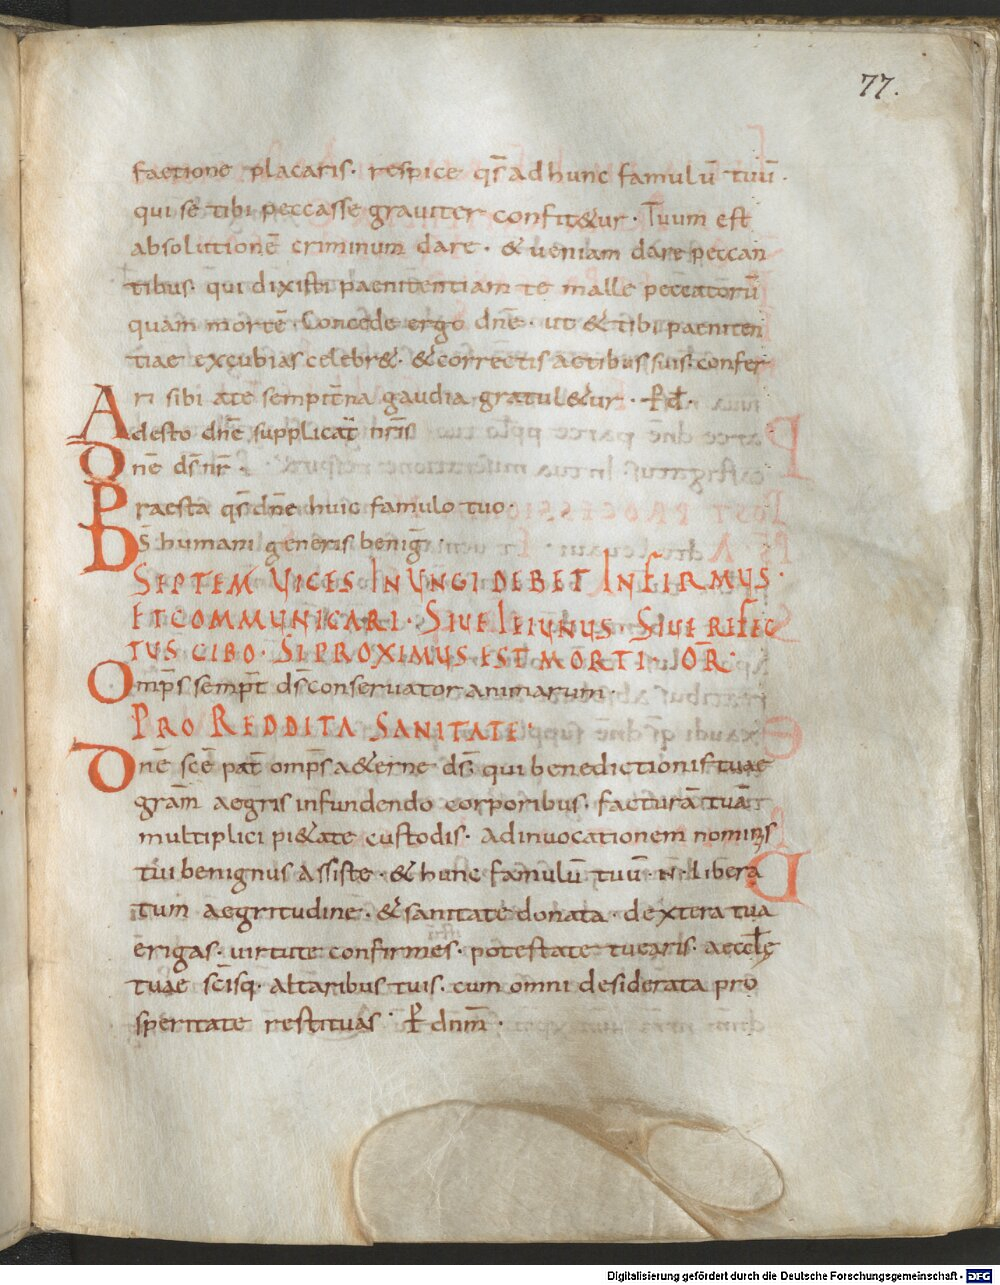 77.
factione placaris· respice qs̄ ad hunc famulū tuū·
qui se tibi peccasse graviter confit&ur· Tuum est
absolutionē criminum dare· & ueniam dare peccan
tibus· qui dixisti paenitentiam te malle peccatorū
quam mortē· Concede ergo dn̄e· ut & tibi paeniten
tiae excubias celebr&· & correctis actibus suis· confer
ri sibi a te sempit̄na gaudia gratul&ur· P̄ d̄·
Adesto dn̄e supplicat̄ nr̄is
Dn̄e ds̄ nr̄·
Praesta qs̄ dn̄e huic famulo tuo·
Ds̄ humani generis beniḡ·
SEPTEM VICES INUNGI DEBET INFIRMUS·
ET COMMUNICARI· SIUE IEIUNUS SIUE REFEC
TUS CIBO· SI PROXIMUS EST MORTI· OR̄·
Omp̄s sempt̄ ds̄ conseruator animarum·
PRO REDDITA SANITATE·
Dn̄e sc̄e pat̄ omp̄s a&erne ds̄· qui benedictionis tuae
grām aegris infundendo corporibus· facturā tuā
multiplici pi&ate custodis· ad inuocationem nominis
tui benignus assiste· & hunc famulū tuū· N· libera
tum aegritudine· & sanitate donata· dextera tua
erigas· uirtute confirmes· potestate tuearis· aeccl̄ę
tuae sc̄isq· altaribus tuis· cum omni desiderata pro
speritate restituas· P̄ dnm̄·
Digitalisierung gefördert durch die Deutsche Forschungsgemeinschaft - DFG